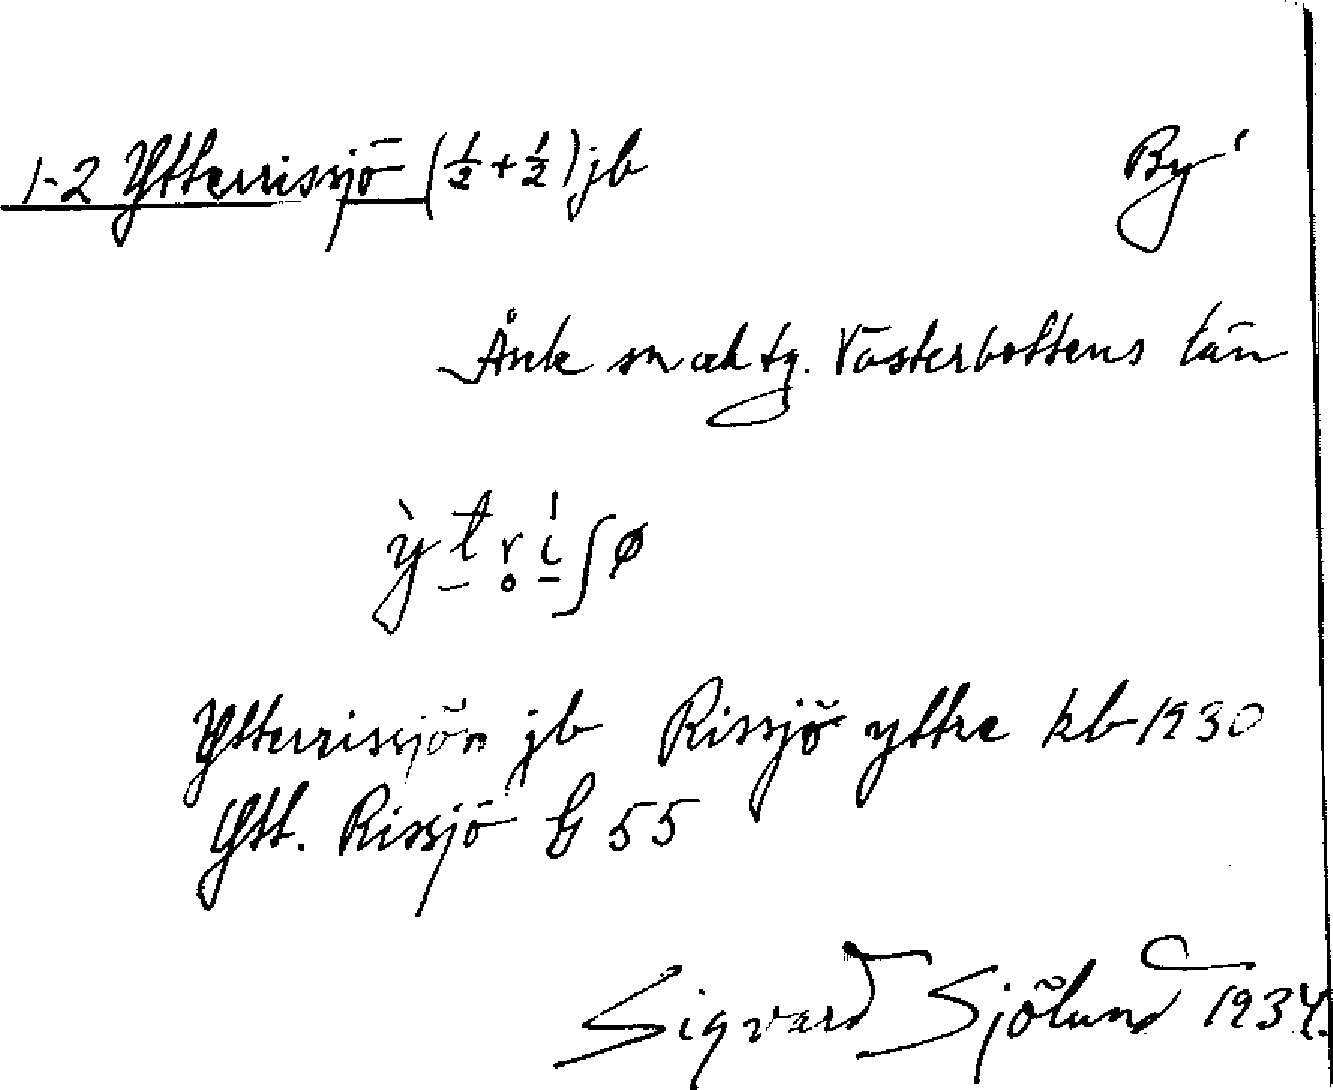 1-2 Ytterrissjö (½+½) jb By
Åsele sn och tg. Västerbottens län
ỳt̲r̥í̲ʃø
Ytterrissjön jb Rissjö yttre kb 1930
Ytt. Rissjö G 55
Sigvard Sjölund 1934.